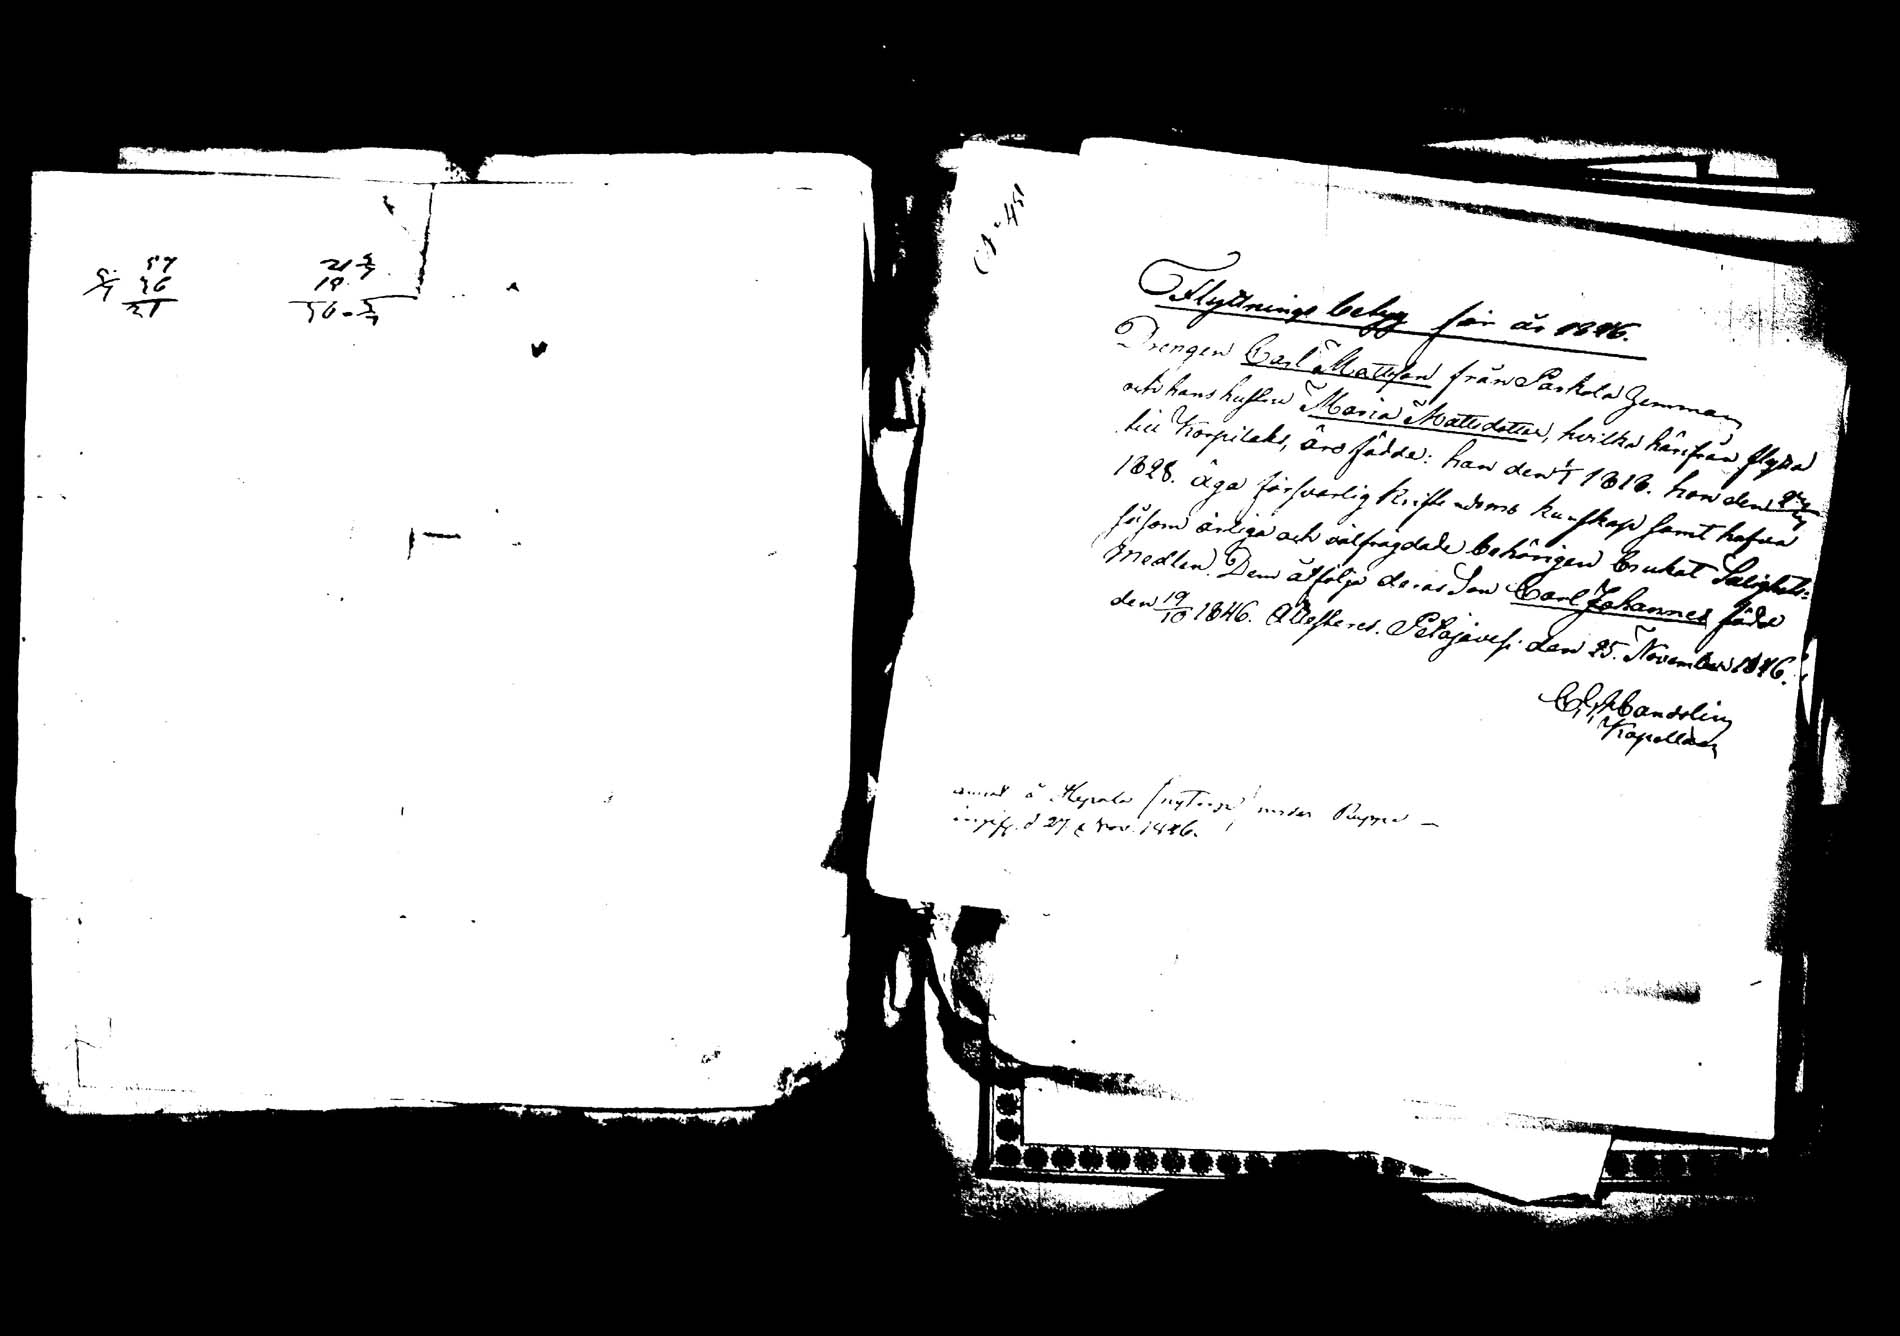 57
36
21
21
19
N:o 451
Flyttnings betyg för år 1846.
Drengen Carl Mattsson från Parkola hemman
och hans hustru Maria Mattsdotter, hvilka härifrån flytta
till Korpilaks, äro födde: han den 1818. hon den
1828. äga försvarlig kristendoms kunskap samt hafva
såsom ärliga och välfrägdade behörigen brukat Salighets-
medlen. Dem åtfölja deras Son Carl Johannes född
den 19/10 1846. Attesteras. Petäjävesi den 25. November 1846.
Candelin
Kapellan
å under
d 27 Nov. 1846.